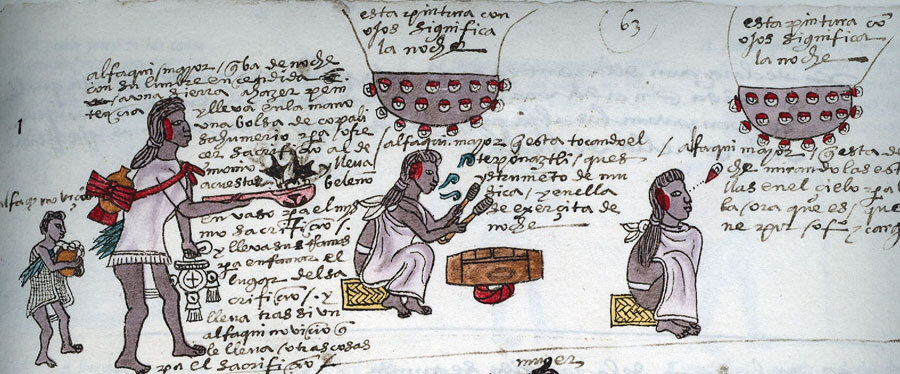 esta pintura con
ojos significa
la noche
63
esta pintura cō
ojos significa
la noche
1
alfaqui mayor / q̃ ba de noche
con su lunbre encendida
a una sierra a hazer peni
tençia y lleva en la mano
una bolsa de copali
sahumerio / pa / ofre
cer sacrifiçio al de
monio / y lleva
acuestas beleño
en vaso pa el mis
mo sacrifiçio /.
y lleva sus
pa enfamar el
lugar del sa
crifiçio /. y
lleva tras si un
alfaqui noviçio q̃
le lleva / otras cosas
pa el sacrifiçio /
alfaqui noviçio
/ alfaqui mayor q̃ esta tocando el
teponaztli / ques
ynstrumēto de mu
sica / y en ella
se exerçita de
noche
/ alfaqui mayor / q̃ esta de
che mirando las est
llas en el çielo / pa
la / ora que es / que
ne por / ofº y carg
muger